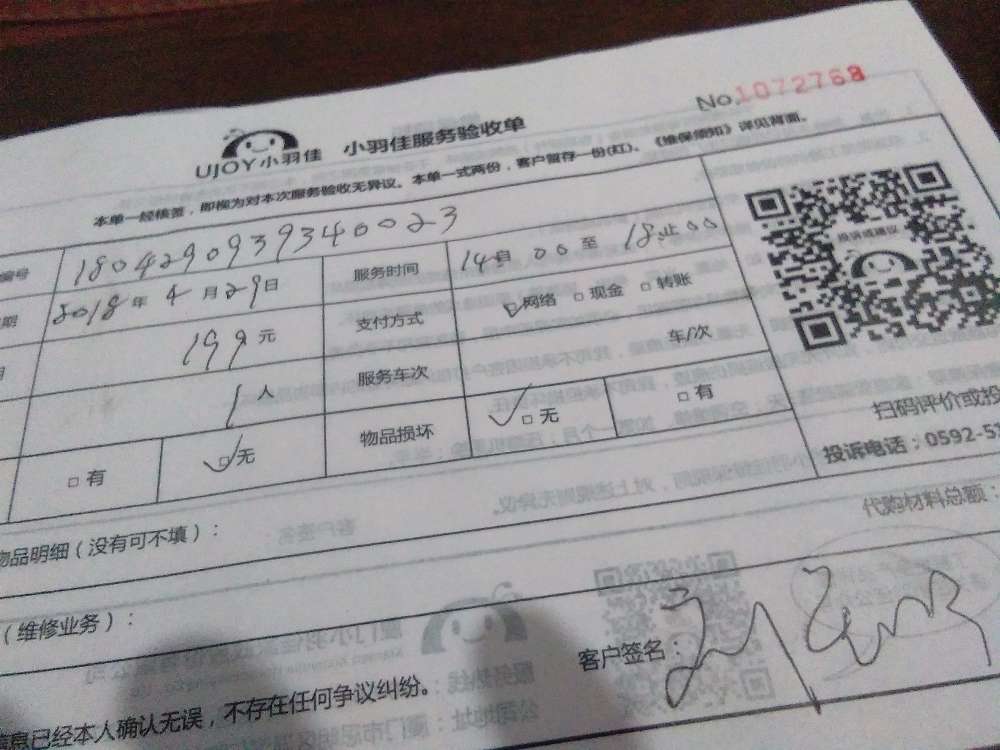 No.1072768
UJOY小羽佳 小羽佳服务验收单
本单一经核签，即视为对本次服务验收无异议。本单一式两份，客户留存一份(红)。《维保须知》详见背面。
编号 1804290939340023
期 2018年4月29日 服务时间 14自00至18止00
199元 支付方式 ☑网络 □现金 □转账
1人 服务车次 车/次
□有 ☑无 物品损坏 ☑无 □有
投诉或建议
扫码评价或投
投诉电话：0592-51
物品明细（没有可不填）： 代购材料总额：
（维修业务）：
客户签名：
信息已经本人确认无误，不存在任何争议纠纷。